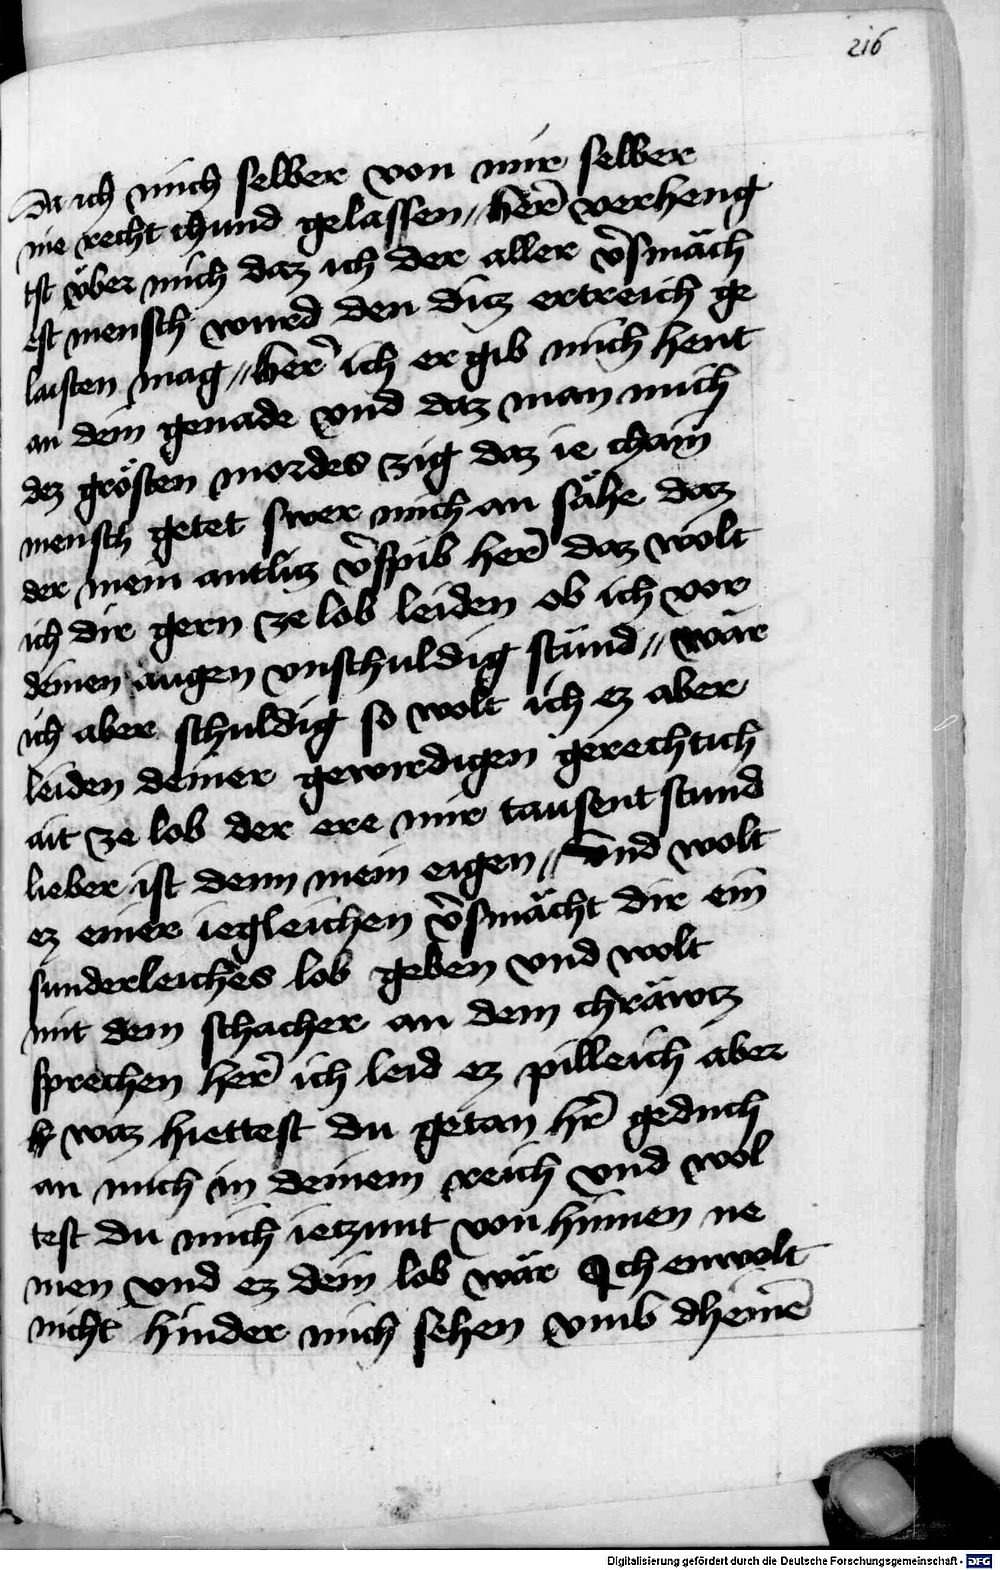 216
Da ich mich selber von mir selber
nie recht chund gelassen // herr̄ verheng
tst v̈ber mich daz ich der aller v̄smäch
est mensch wurd den ditz ertreich ge
laisten mag // her̄ ich er gib mich heut
an dein genade vnd daz man mich
dez grösten mordes zig daz ie chain
mensch getet swer mich an sähe daz
der mein antlitz v̄spib her̄ daz wolt
ich dir gern ze lob leiden ob ich vor
deinen augen vnschuldig stünd // wär
ich aber schuldig so wolt ich ez aber
leiden deiner gewirdigen gerechtich
ait ze lob der ere mir tausent stund
lieber ist denn mein eigen // Vnd wolt
ez einer iegleichen v̄smächt dir ein
sunderleiches lob geben vnd wolt
mit dem schacher an dem chräwtz
sprechen her̄ ich leid ez pilleich aber
waz hiettest du getan hr̄ gedench
an mich in deinem reich vnd wol
test du mich ietzunt von hinnen ne
men vnd ez dein lob wär Ich enwolt
nicht hinder mich sehen vmb dheinē
Digitalisierung gefördert durch die Deutsche Forschungsgemeinschaft - DFG